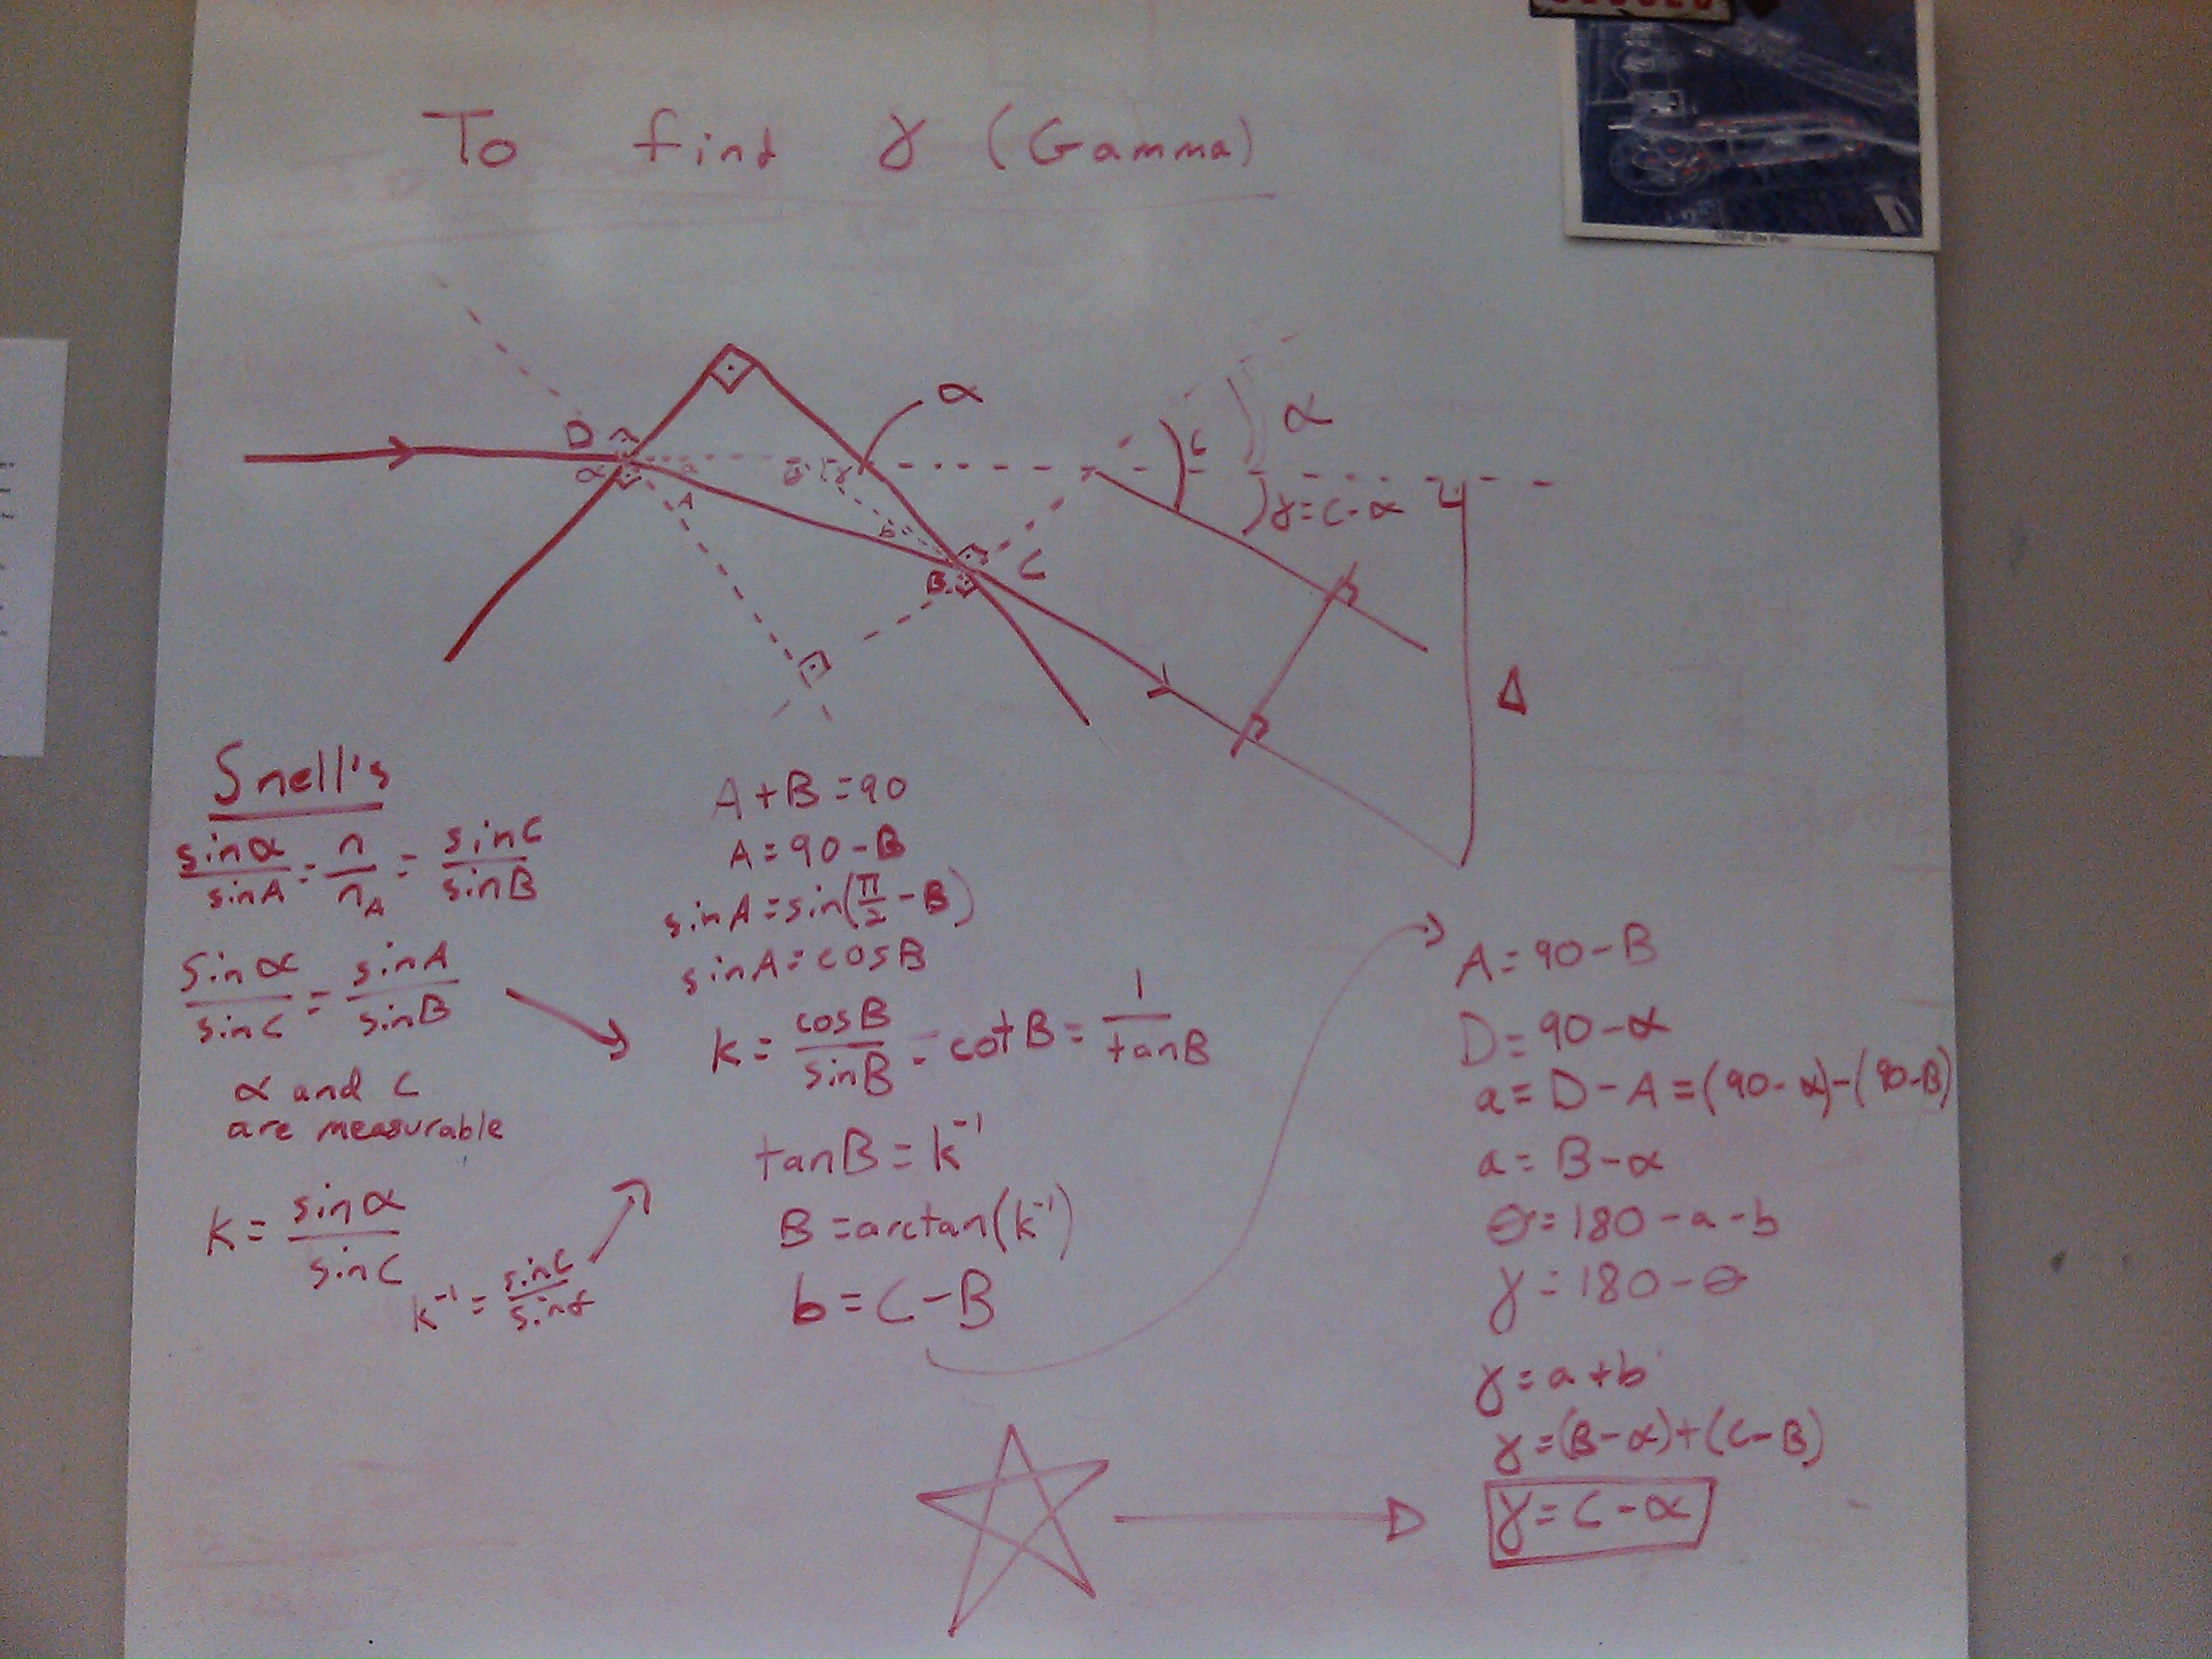 To find γ (Gamma)
α
D
α
a
θ
γ
A
b
B
C
C
α
γ=C-α
Δ
Snell's
sinα/sinA = n/n_A = sinC/sinB
sinα/sinC = sinA/sinB
α and C
are measurable
K = sinα/sinC
K⁻¹ = sinC/sinα
A+B=90
A=90-B
sinA=sin(π/2-B)
sinA=cosB
K = cosB/sinB = cotB = 1/tanB
tanB=K⁻¹
B=arctan(K⁻¹)
b=C-B
A=90-B
D=90-α
a=D-A=(90-α)-(90-B)
a=B-α
θ=180-a-b
γ=180-θ
γ=a+b
γ=(B-α)+(C-B)
γ=C-α